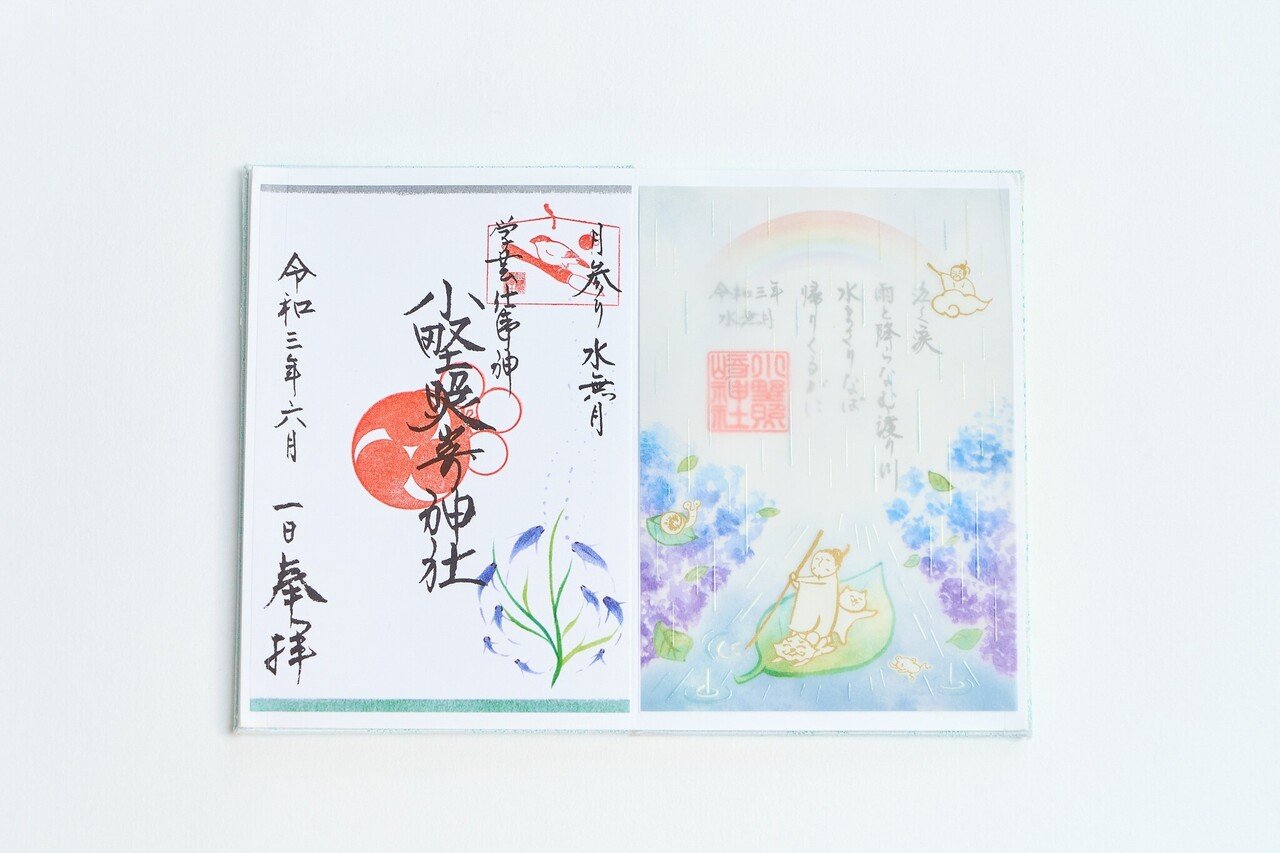 泣く涙
雨と降らなむ渡り川
水まさりなば
帰りくるがに
令和三年
水無月
小野照
崎神社
月参り 水無月
学芸仕事神
小野照崎神社
令和三年六月 一日 奉拝